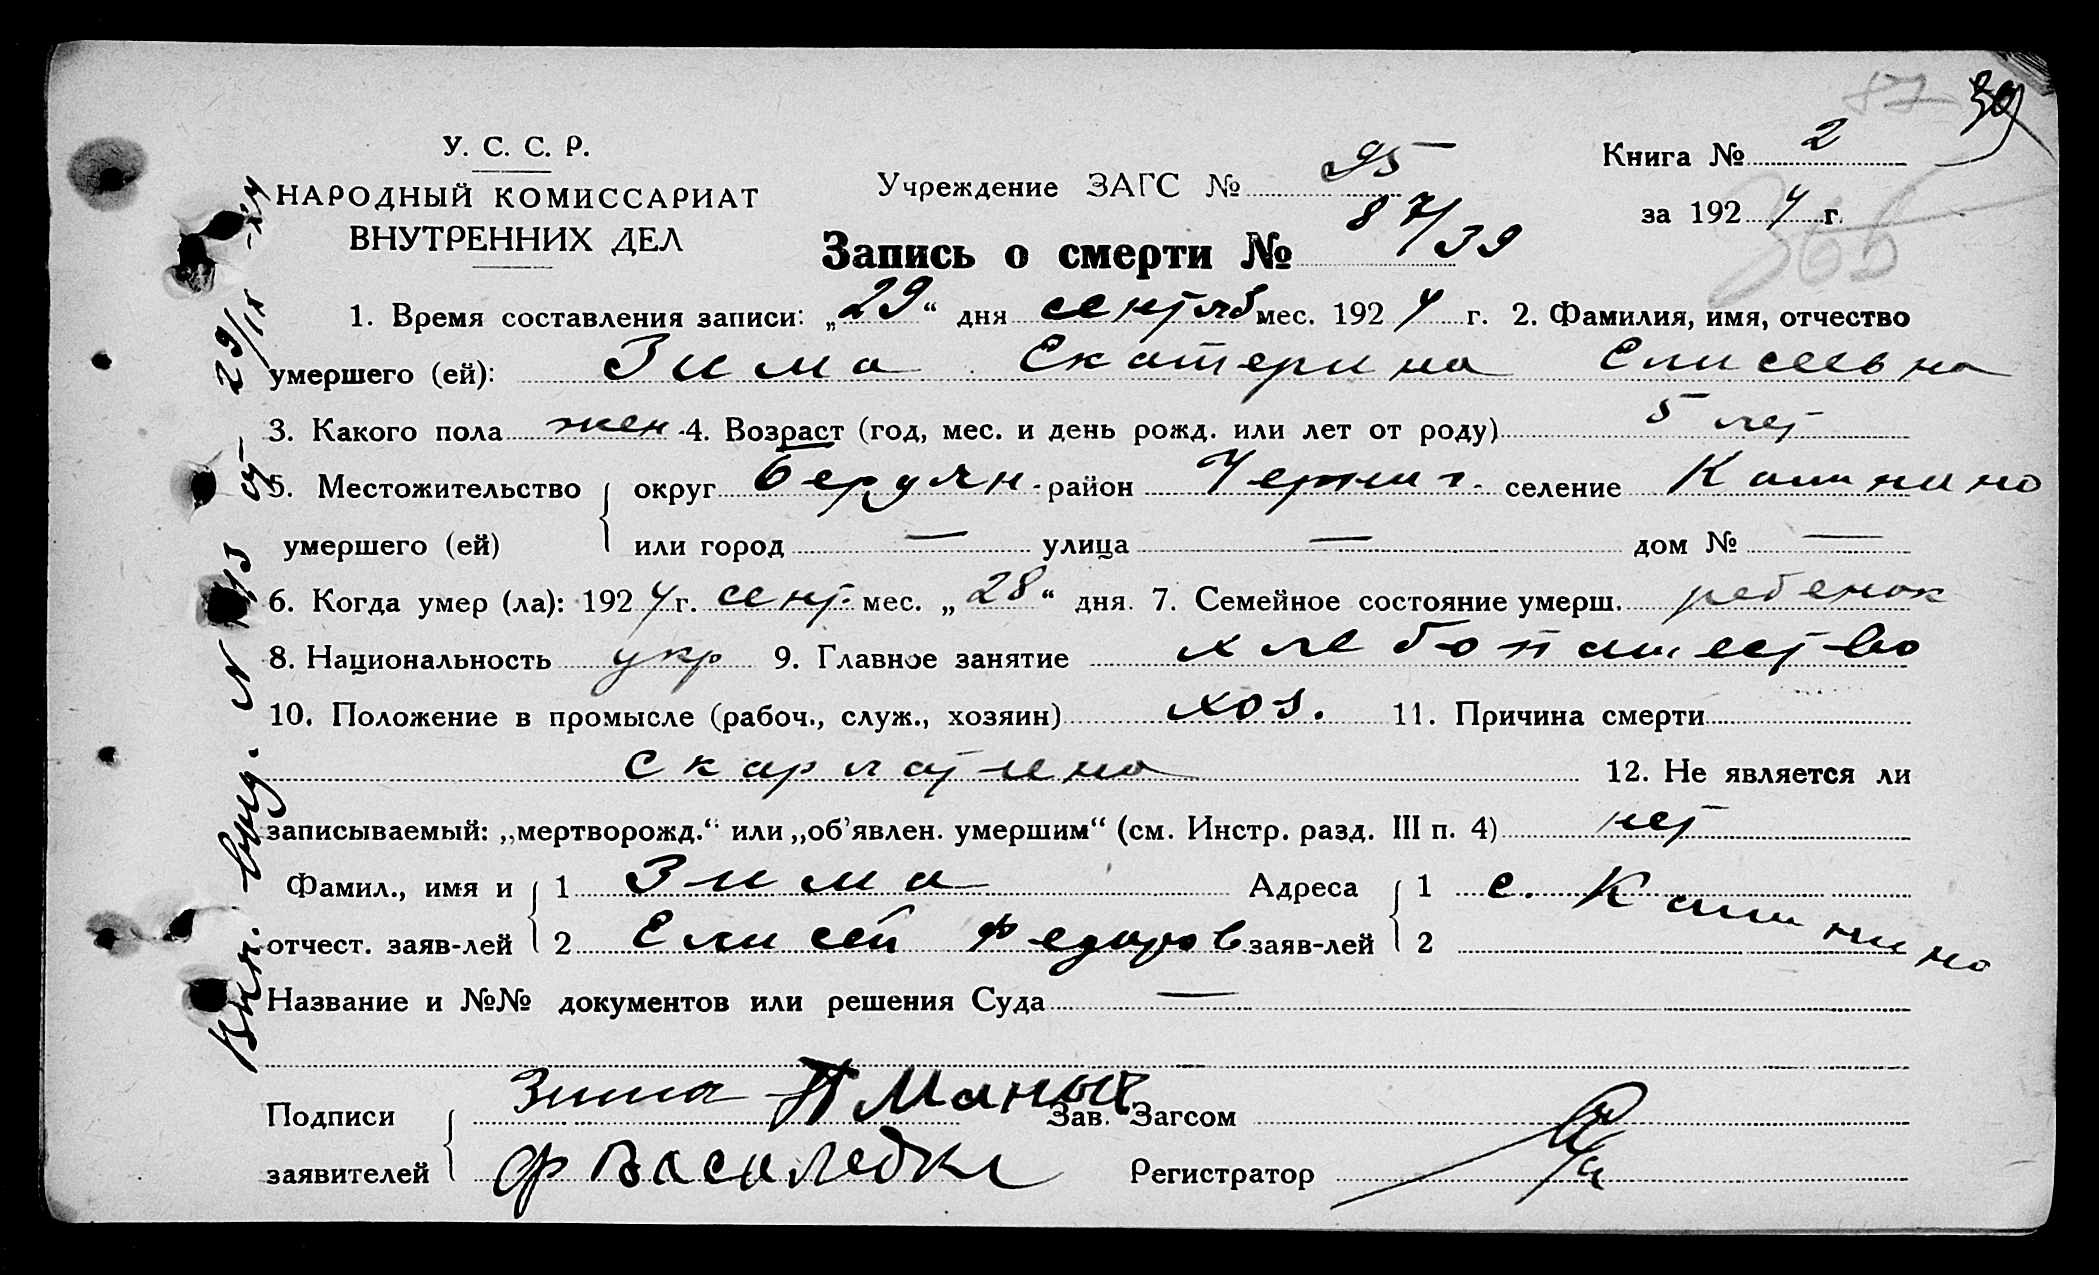 87 39
У. С. С. Р.
НАРОДНЫЙ КОМИССАРИАТ
ВНУТРЕННИХ ДЕЛ
Учреждение ЗАГС № 95
Книга № 2
за 1924 г.
366
Запись о смерти № 87/39
1. Время составления записи: „29“ дня сентяб мес. 1924 г. 2. Фамилия, имя, отчество
умершего (ей): Зима Екатерина Елисеевна
3. Какого пола жен. 4. Возраст (год, мес. и день рожд. или лет от роду) 5 лет
5. Местожительство округ Бердян. район Черниг. селение Калинино
умершего (ей) или город — улица — дом № —
6. Когда умер (ла): 1924 г. сент. мес. „28“ дня. 7. Семейное состояние умерш. ребенок
8. Национальность укр 9. Главное занятие хлебопашество
10. Положение в промысле (рабоч., служ., хозяин) хоз. 11. Причина смерти
скарлатина 12. Не является ли
записываемый: „мертворожд.“ или „об’явлен. умершим“ (см. Инстр. разд. III п. 4) нет
Фамил., имя и 1 Зима Адреса 1 с. Калинино
отчест. заяв-лей 2 Елисей Федоров заяв-лей 2
Название и №№ документов или решения Суда —
Подписи Зима Зав. Загсом
заявителей Регистратор
29/IX